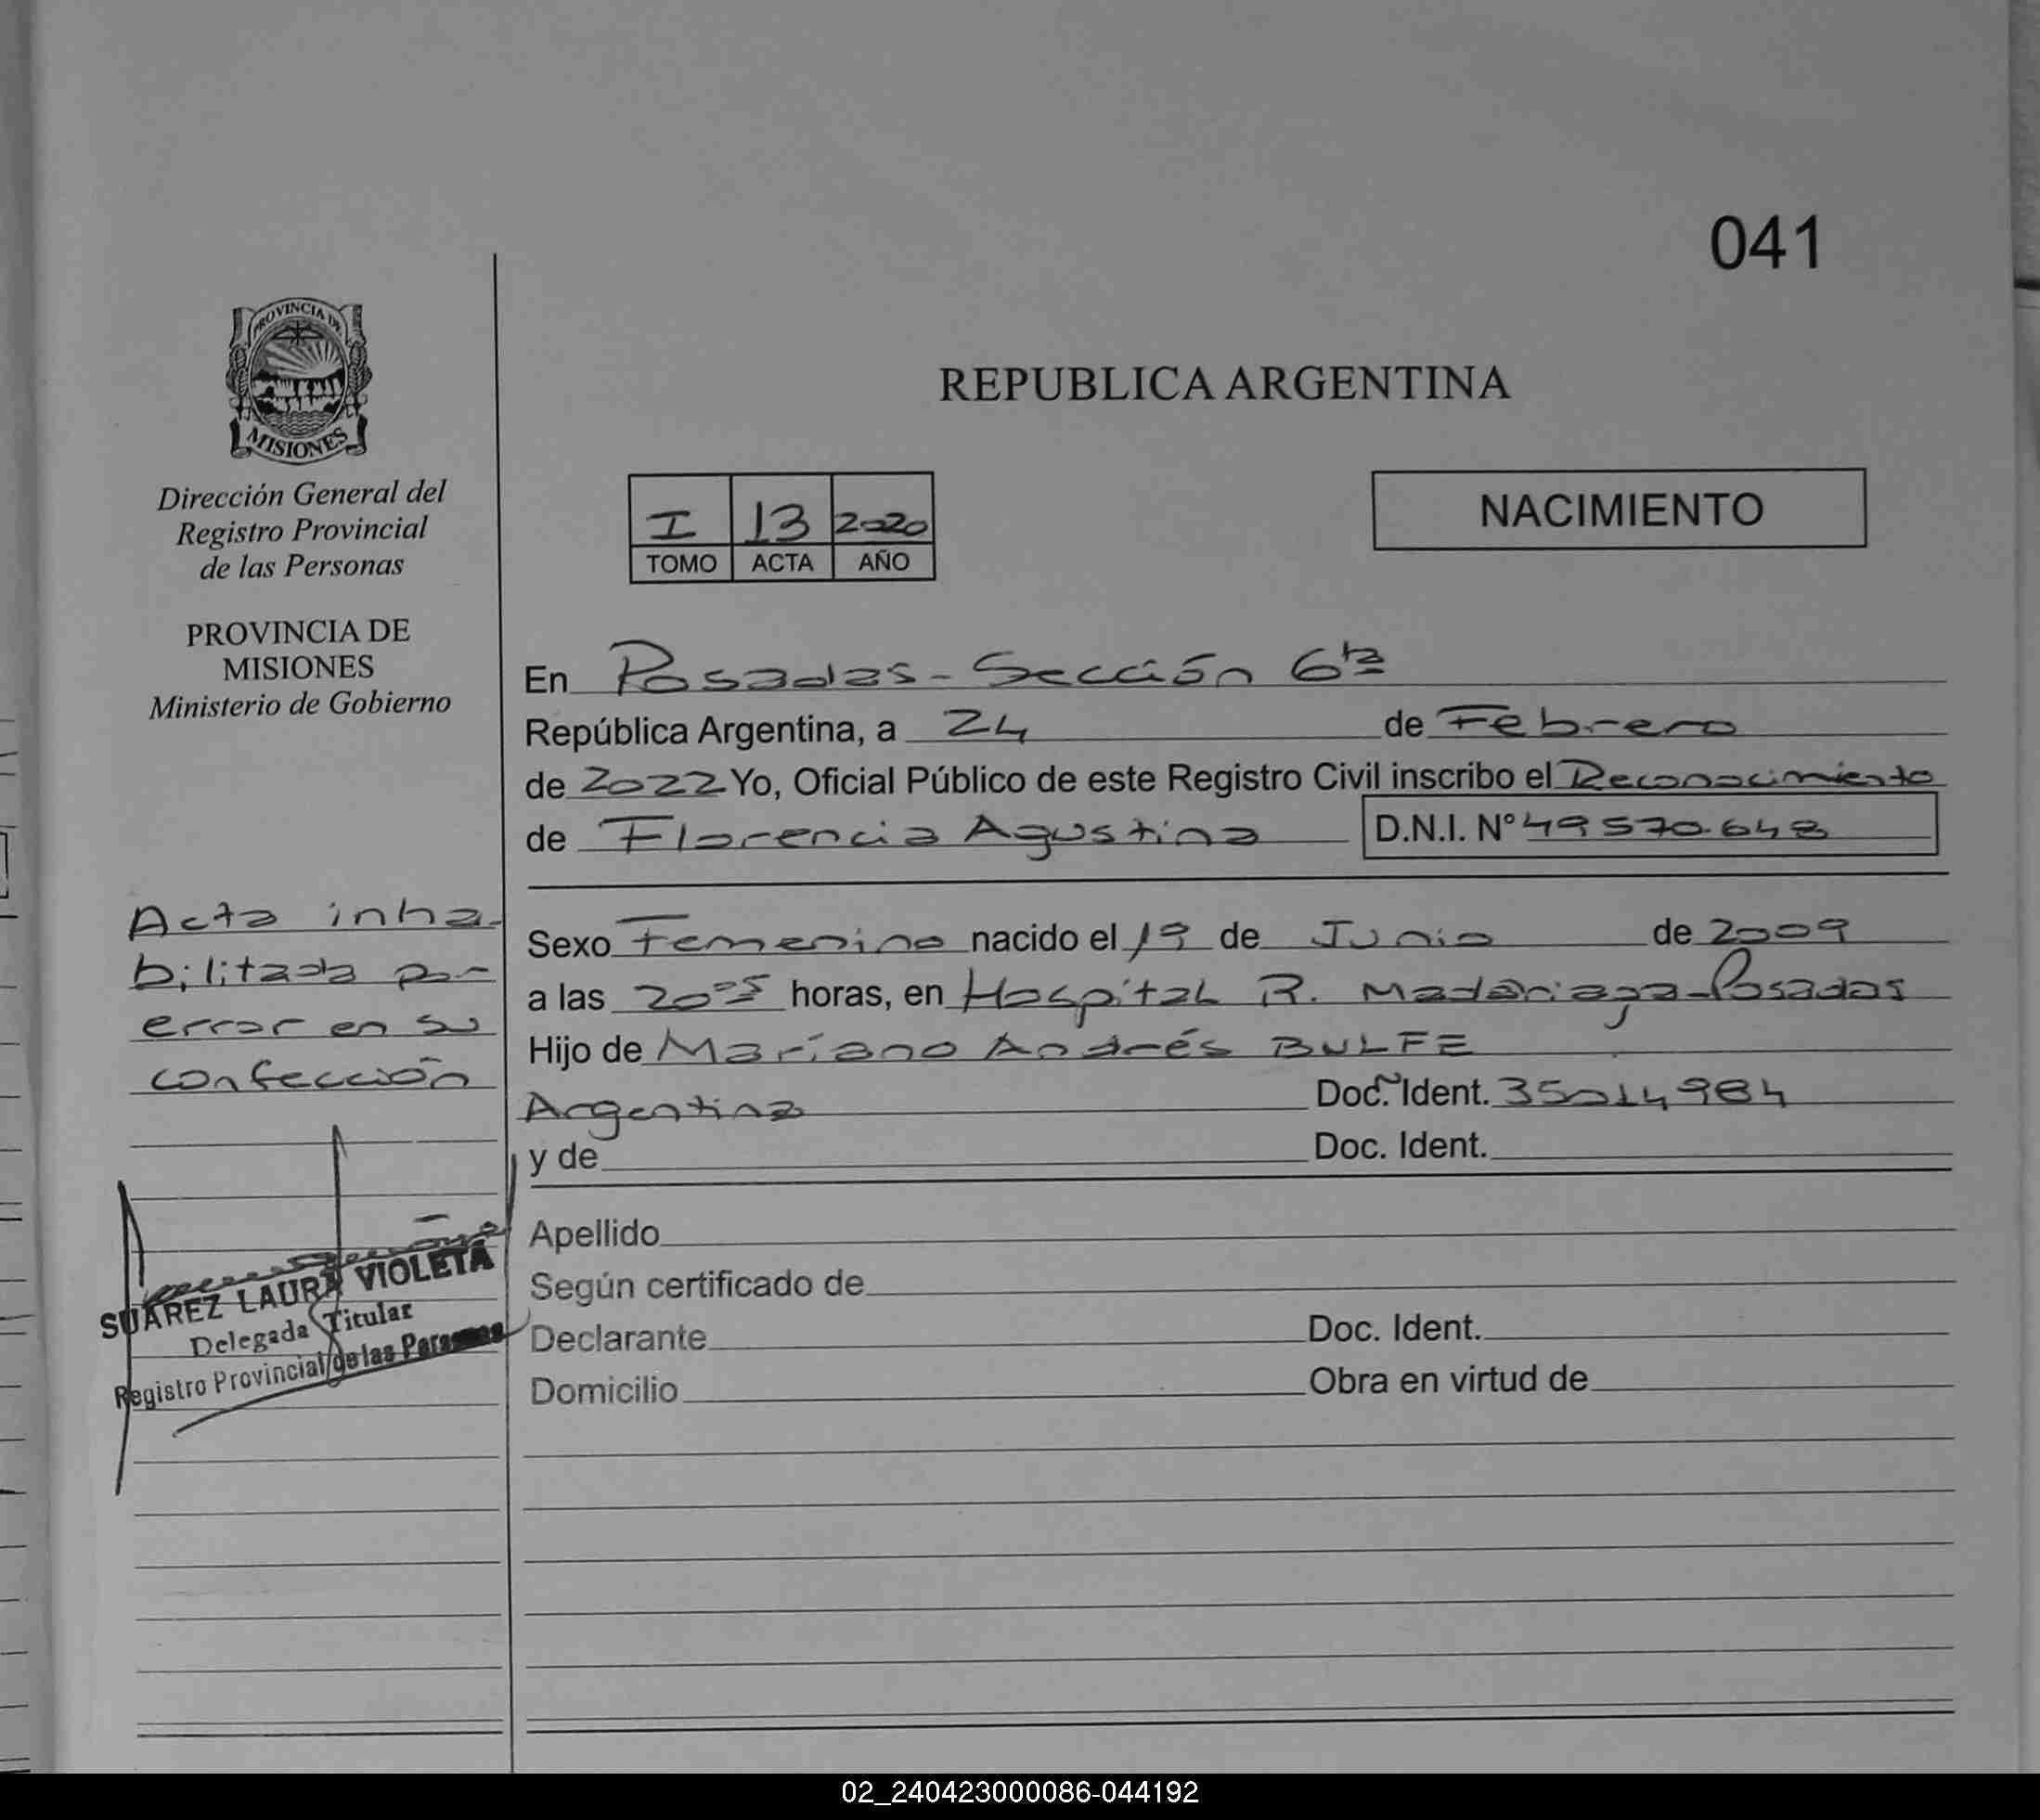 041
PROVINCIA DE
MISIONES
Dirección General del
Registro Provincial
de las Personas
PROVINCIA DE
MISIONES
Ministerio de Gobierno
REPUBLICA ARGENTINA
I 13 2020
TOMO ACTA AÑO
NACIMIENTO
En Posadas - Sección 6ta
República Argentina, a 24 de Febrero
de 2022 Yo, Oficial Público de este Registro Civil inscribo el Reconocimiento
de Florencia Agustina D.N.I. N° 49 570.648
Sexo Femenino nacido el 19 de Junio de 2009
a las 20 05 horas, en Hospital R. Madariaga - Posadas
Hijo de Mariano Andrés BULFE
Argentina Doc. Ident. 35014984
y de Doc. Ident.
Apellido
Según certificado de
Declarante Doc. Ident.
Domicilio Obra en virtud de
Acta inha-
bilitada por
error en su
confección
SUAREZ LAURA VIOLETA
Delegada Titular
Registro Provincial de las Personas
02_240423000086-044192